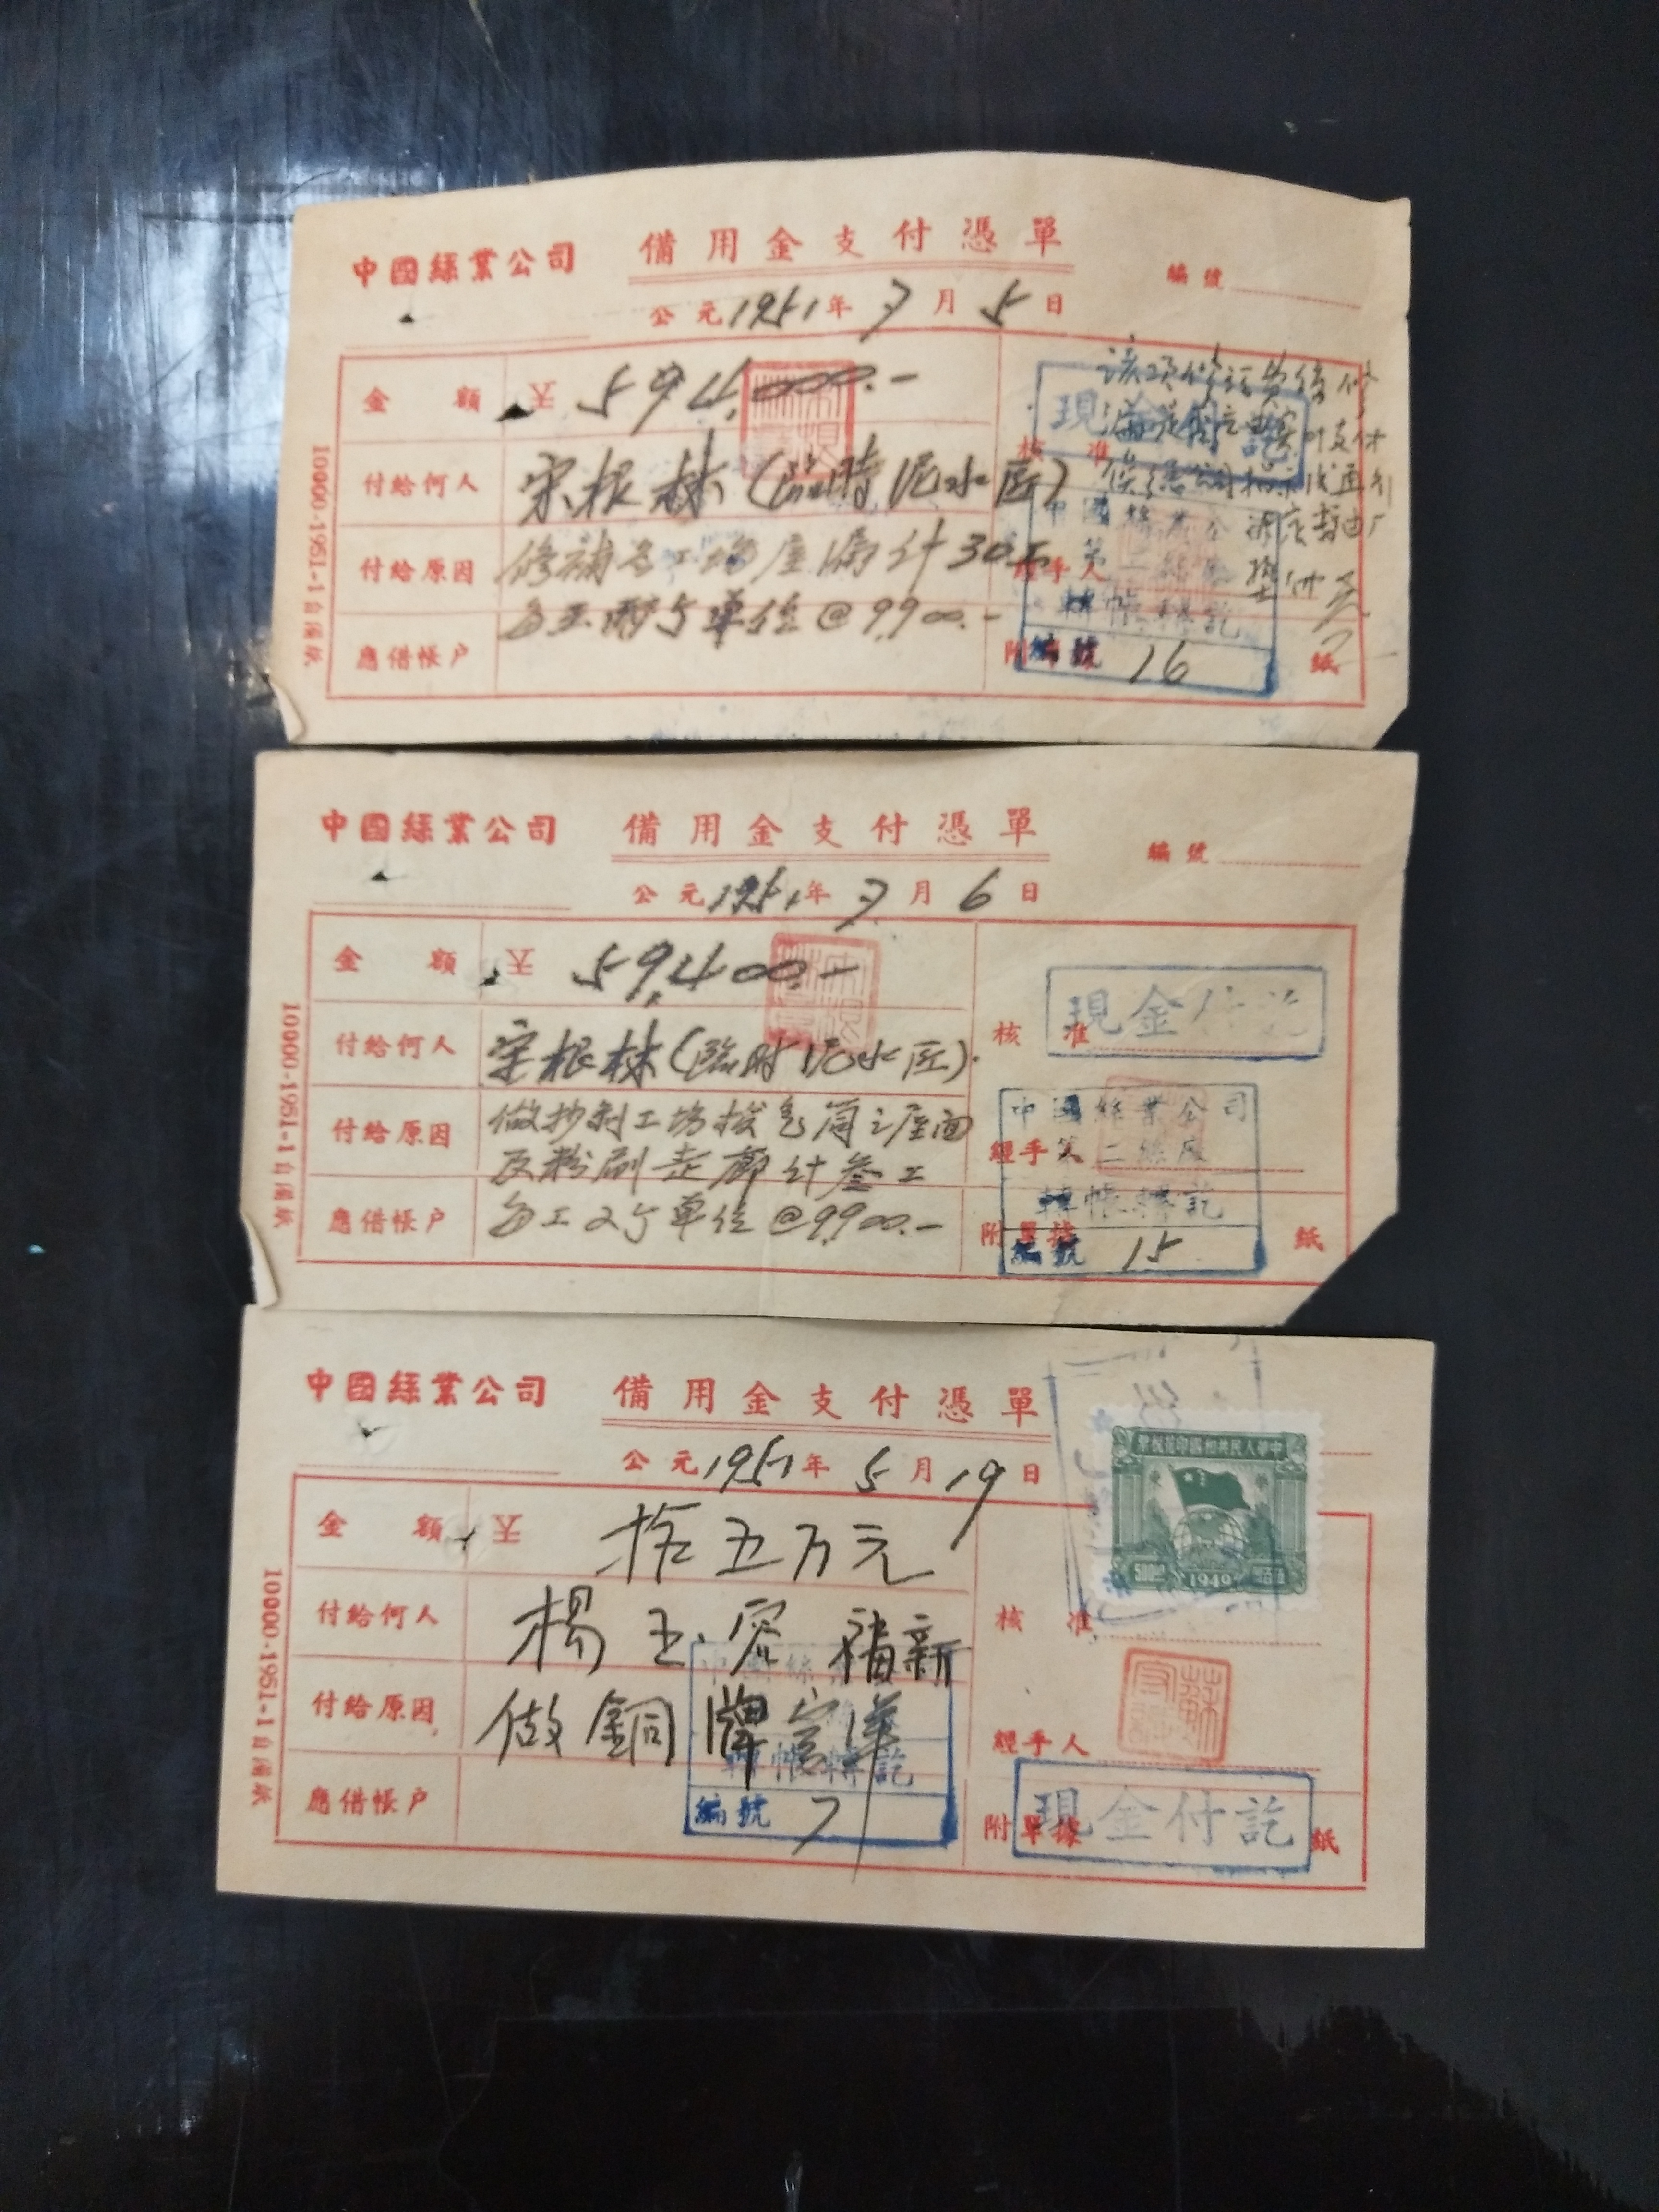 中國絲業公司
備用金支付憑單
編號
公元1951年7月5日
金額
594,000.-
付給何人
宋根林(臨時泥水匠)
核准
付給原因
修補各工場屋漏計30工
每工兩个單位@9,900.-
經手人
應借帳戶
附單據
紙
現金付訖
中國絲業公司
第二絲廠
轉帳轉訖
編號 16
10000·1951-1
中國絲業公司
備用金支付憑單
編號
公元1951年7月6日
金額
59,400.-
付給何人
宋根林(臨时泥水匠)
核准
現金付訖
付給原因
工場拔气筒之屋面
及粉刷走廊計叁工
每工2个單位@9,900.-
經手人
應借帳戶
附單據
紙
中國絲業公司
第二絲廠
轉帳轉訖
編號 15
10000·1951-1
中國絲業公司
備用金支付憑單
公元1951年5月19日
中華人民共和國印花稅票
500圓
1949
伍百圓
金額
拾五万元
付給何人
楊玉
核准
付給原因
做銅牌
經手人
應借帳戶
附單據
紙
轉帳轉訖
編號 7
現金付訖
10000·1951-1